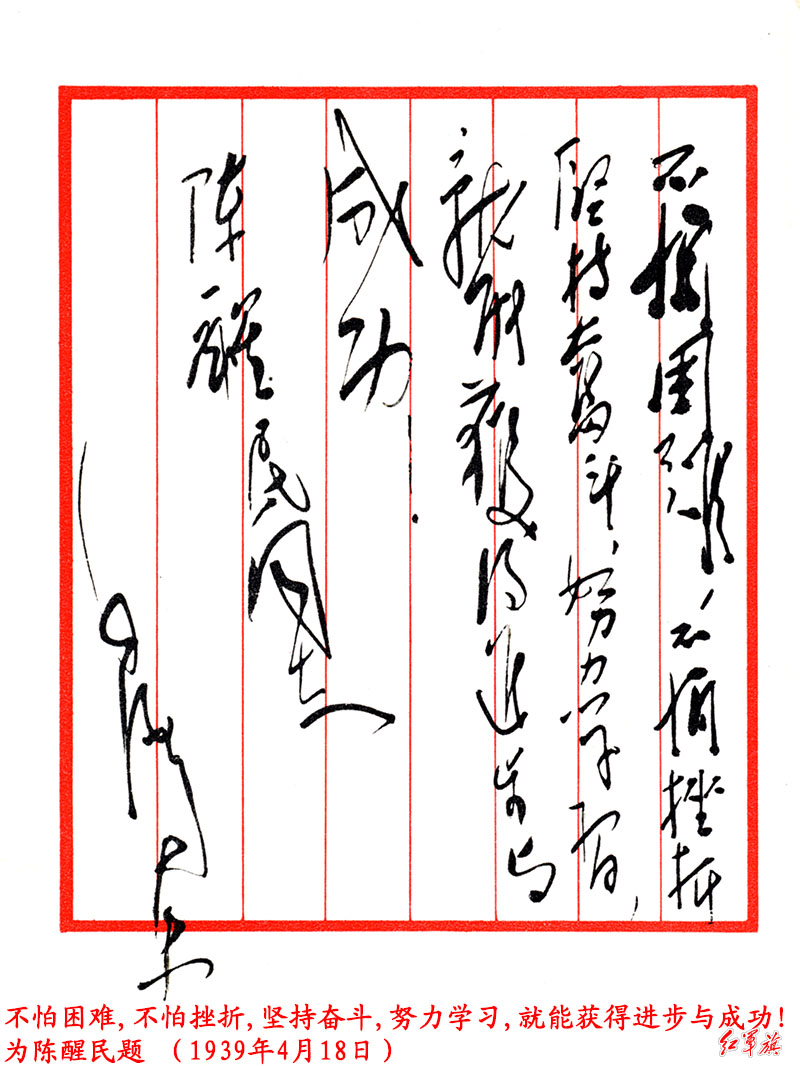 不怕困难、不怕挫折
坚持奋斗、努力学習,
就能获得进步与
成功!
陈醒民同志
毛泽东
不怕困难,不怕挫折,坚持奋斗,努力学习,就能获得进步与成功!
为陈醒民题 (1939年4月18日)
红军旗